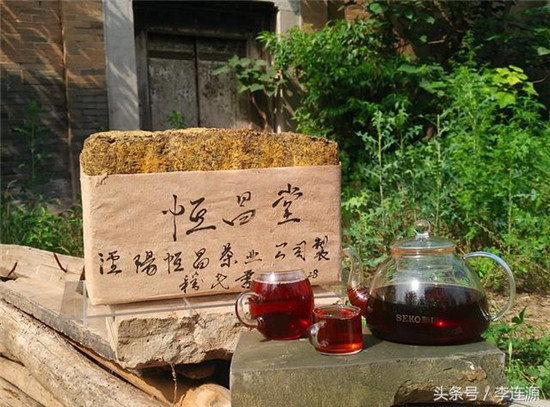 恒昌堂
泾陽恒昌茶业公司製
SEKO
头条号 / 李连源